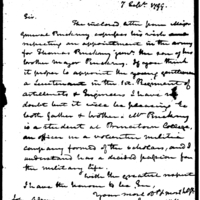 7 Sept. 1799.
Sir,
The inclosed letter from Major
General Pinckney expresses his wish
respecting an appointment in the army
for Thomas Pinckney junr. the son of his
brother Major Pinckney. If you think
it proper to appoint the young gentleman
a Lieutenant in the 1st Regiment of
Artillerists & Engineers I have no
doubt but it will be pleasing to
both father & brother. Mr Pinckney
is a student at Princeton College,
an officer in a volunteer military
company formed of the scholars, and I
understand has a decided passion for
the military life.
With the greatest respect
I have the honour to be, Sir,
your most obt. servt.